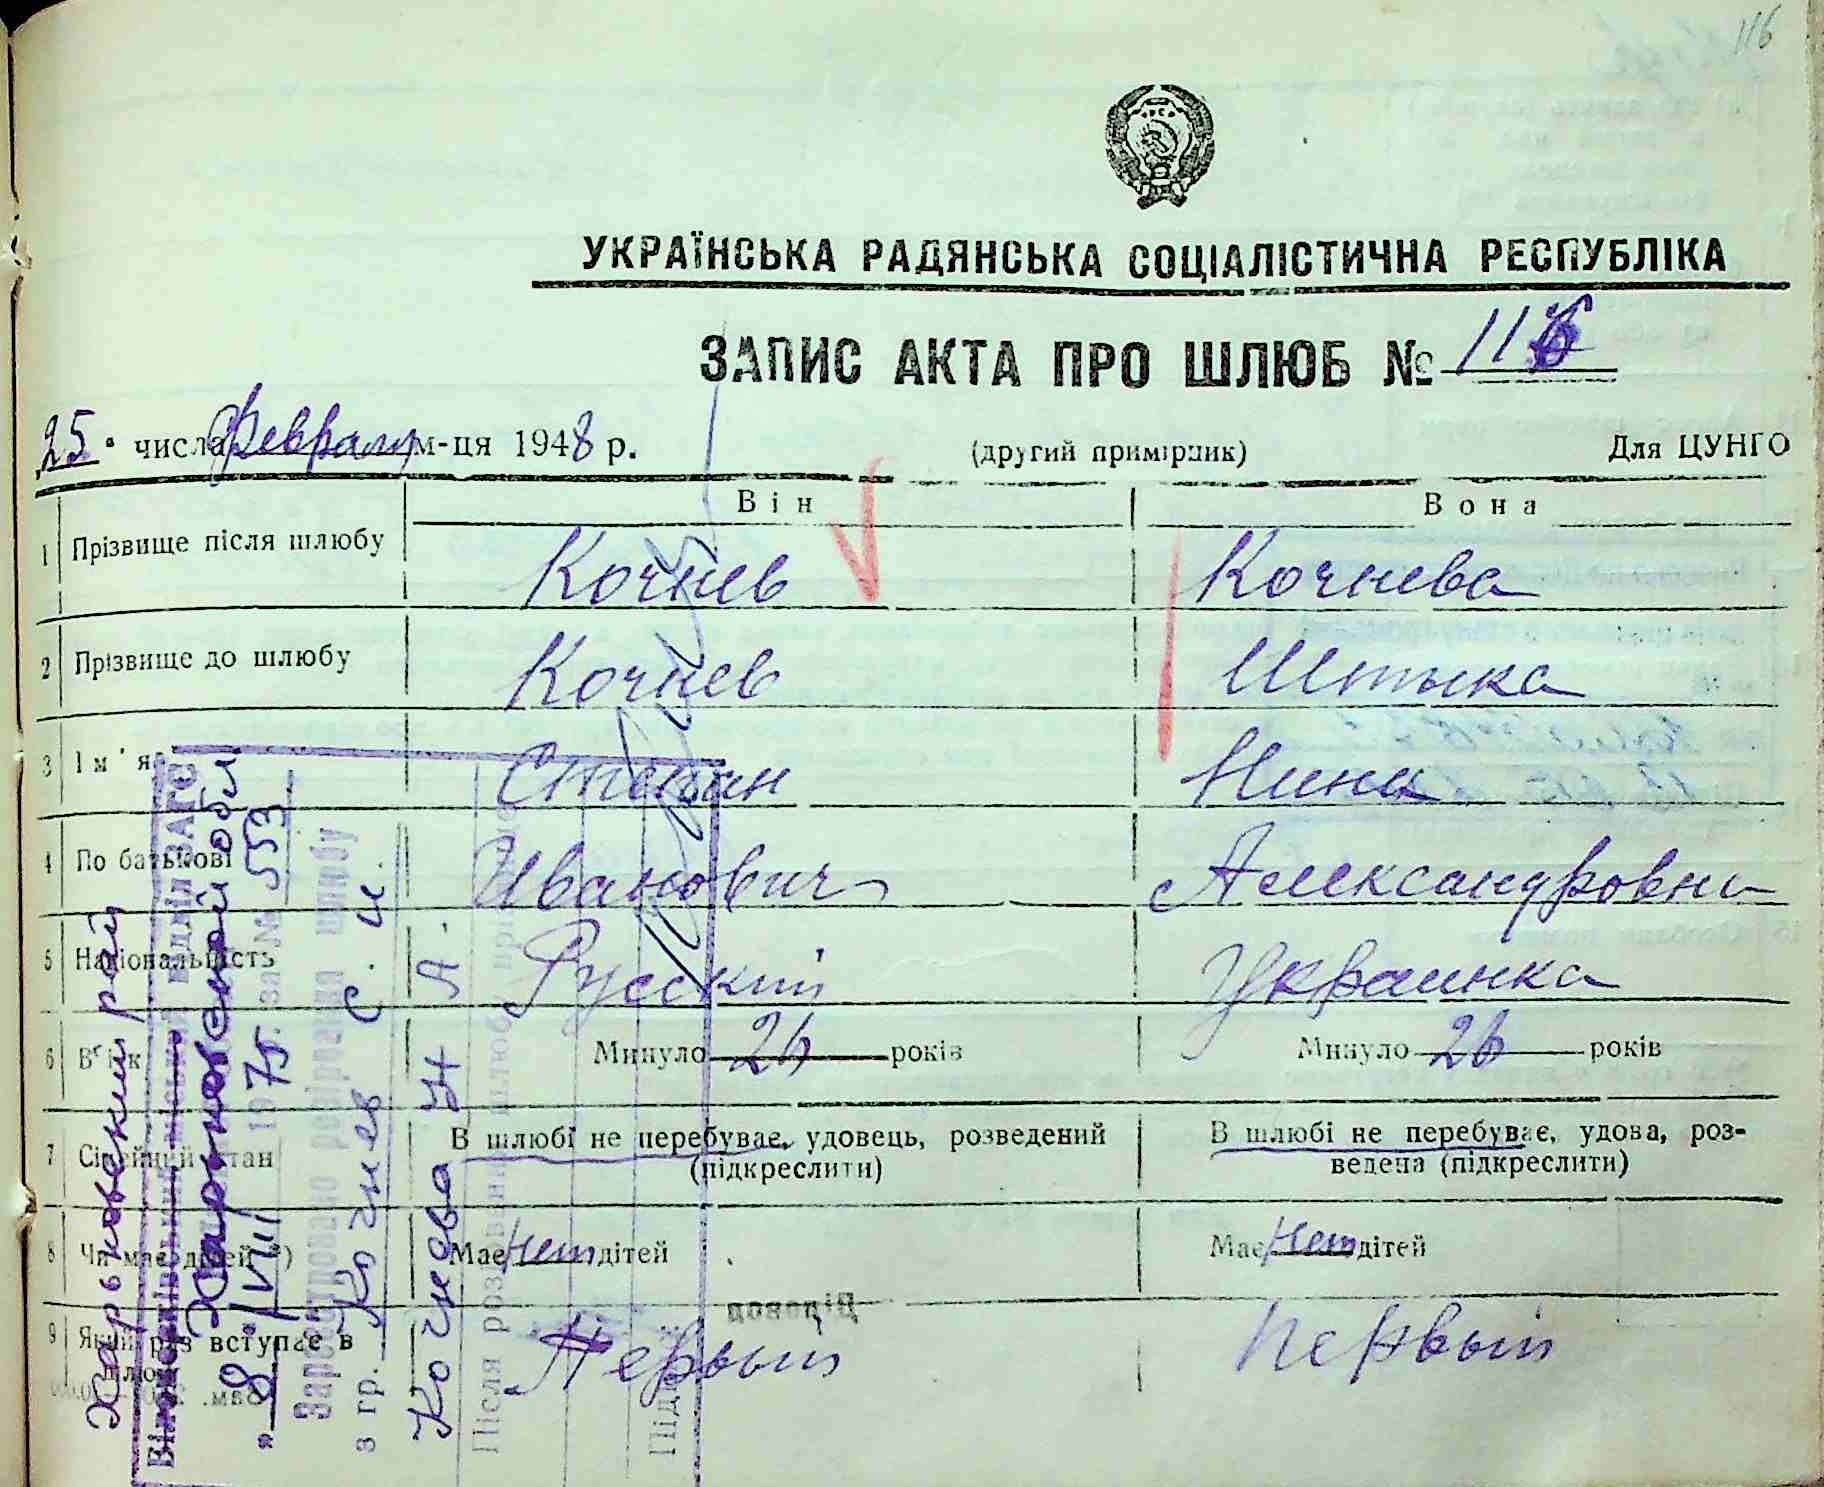 116
УКРАЇНСЬКА РАДЯНСЬКА СОЦІАЛІСТИЧНА РЕСПУБЛІКА
ЗАПИС АКТА ПРО ШЛЮБ № 116
25 числа февраля м-ця 1948 р. (другий примірник) Для ЦУНГО
Він Вона
1 Прізвище після шлюбу Кочнев Кочнева
2 Прізвище до шлюбу Кочнев Штыка
3 Ім'я Степан Нина
4 По батькові Иванович Александровна
5 Національність Русский Украинка
6 Вік Минуло 26 років Минуло 26 років
7 Сімейний стан В шлюбі не перебуває, удовець, розведений (підкреслити) В шлюбі не перебуває, удова, роз-
ведена (підкреслити)
8 Чи має дітей Має нет дітей Має нет дітей
9 Який раз вступає в шлюб Первый Первый
Харьковский рай
відділ ЗАГС
Харьковской обл
"8" VIII 1975 г. за № 553
Зареєстровано розірвання шлюбу
з гр. Кочнев С. И.
Кочнева Н А.
Після розірвання шлюбу прізвище